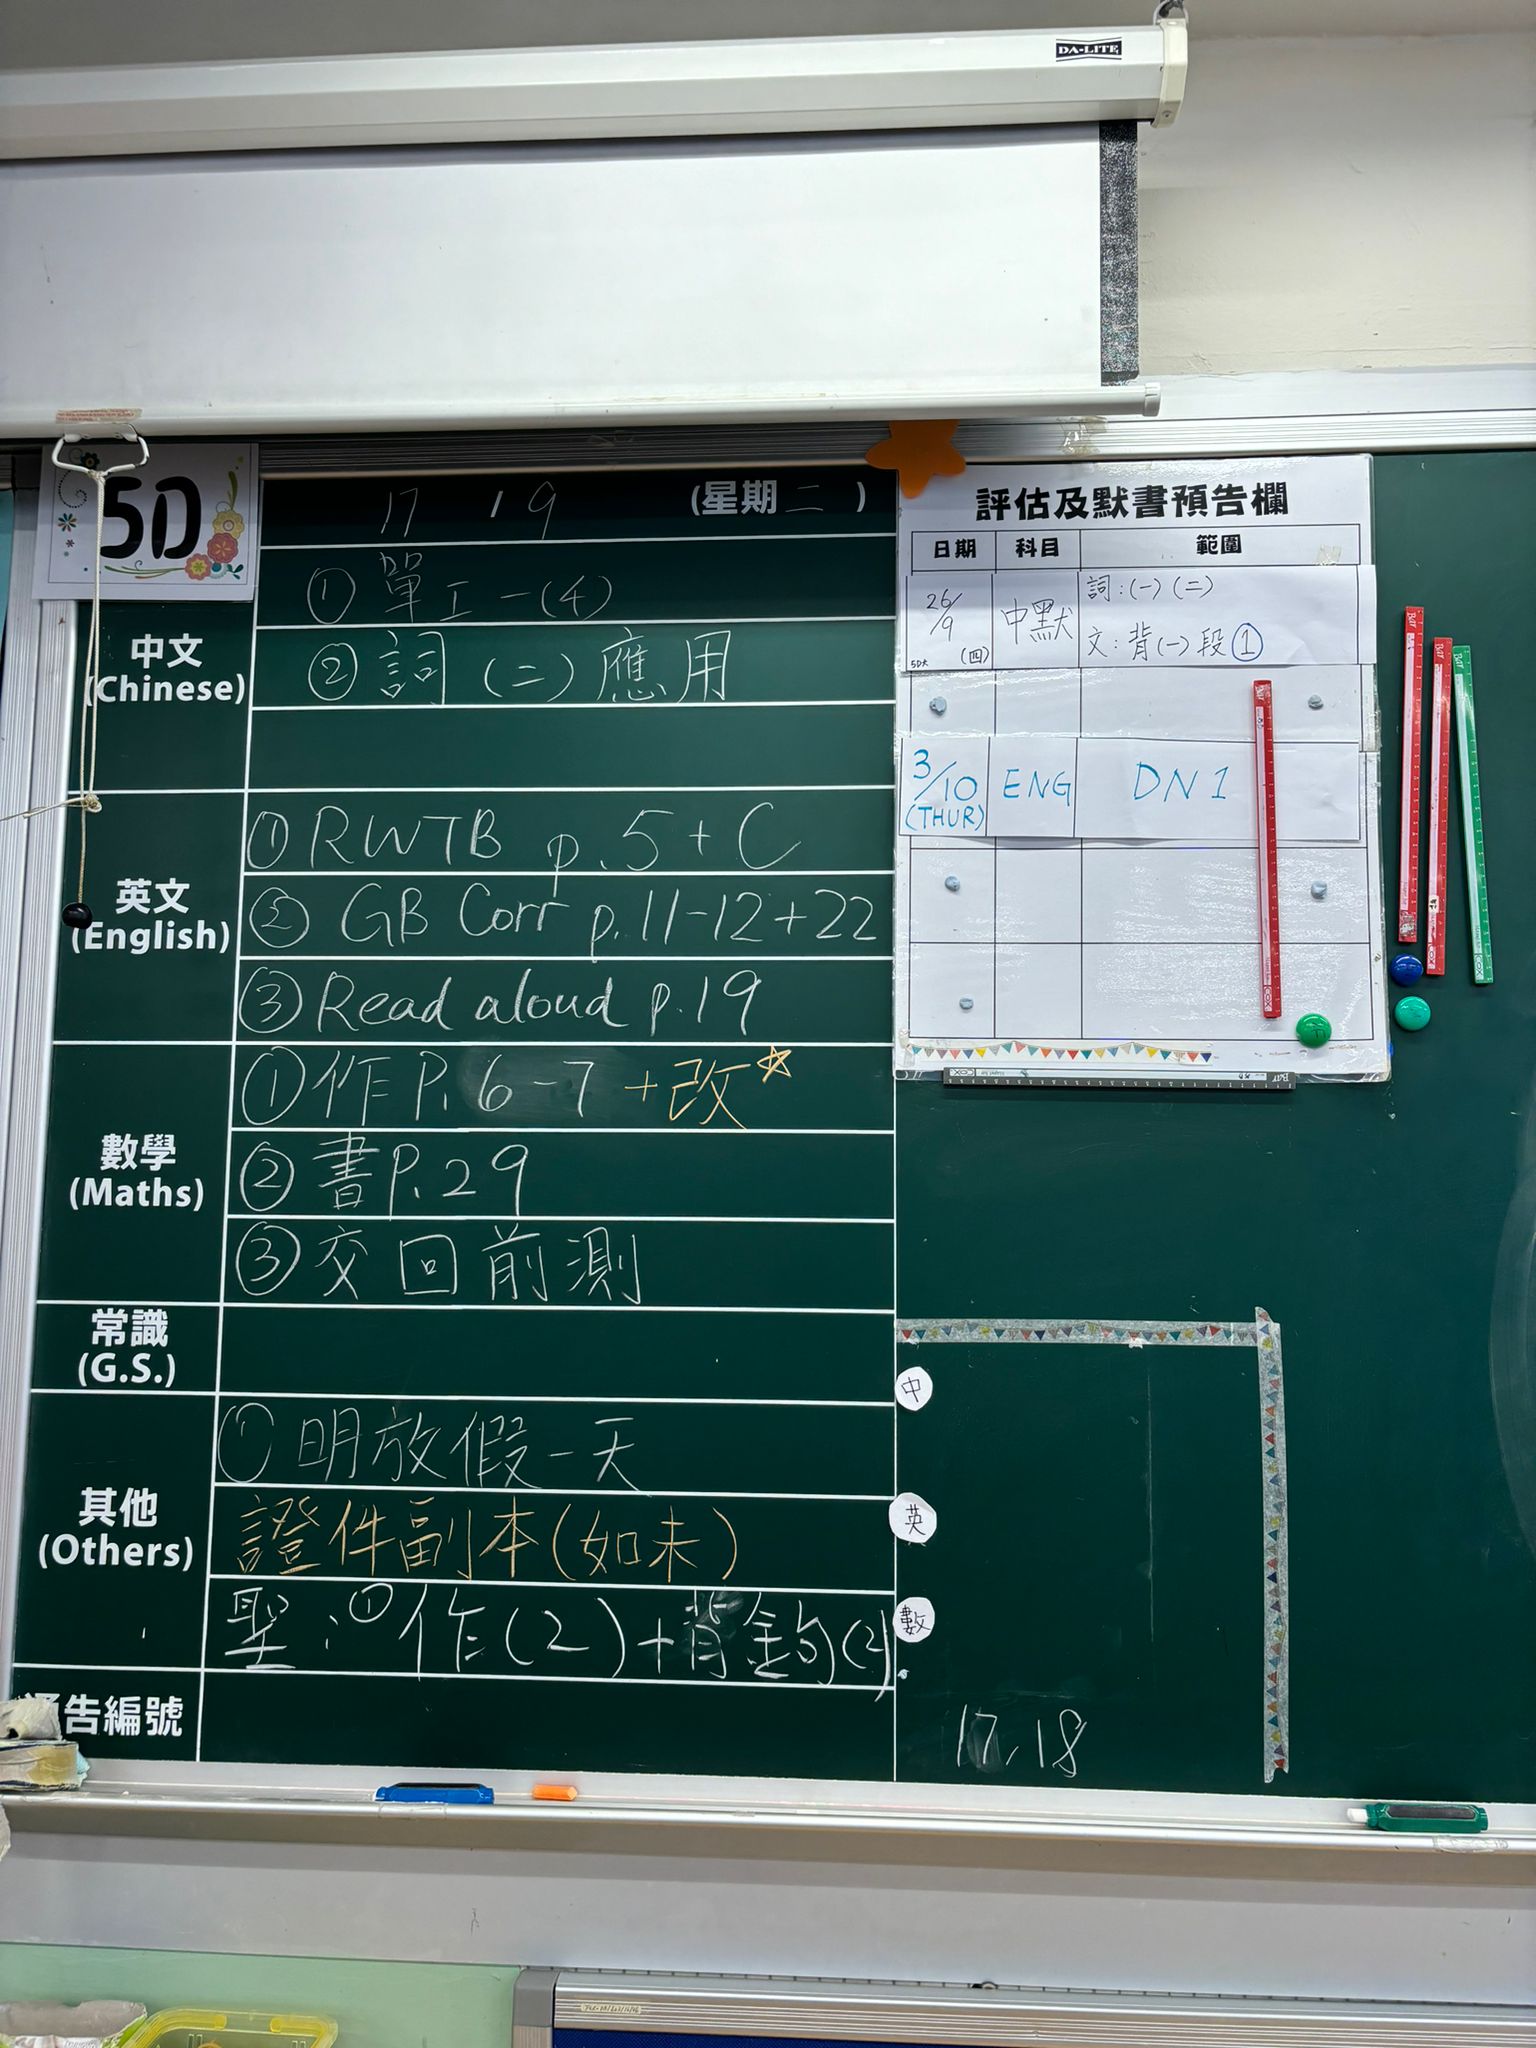 DA-LITE
5D
17 / 9 (星期二)
中文
(Chinese)
① 單工一(4)
② 詞(二)應用
英文
(English)
① RWTB p.5+C
② GB Corr p.11-12+22
③ Read aloud p.19
數學
(Maths)
① 作P.6-7+改☆
② 書P.29
③ 交回前測
常識
(G.S.)
其他
(Others)
① 明放假一天
證件副本(如未)
聖:① 作(2)+背金句(2)
告編號
評估及默書預告欄
日期 科目 範圍
26/9 (四) 中默 詞:(一)(二)
文:背(一)段①
3/10 (THUR) ENG DN 1
中
英
數
17, 18